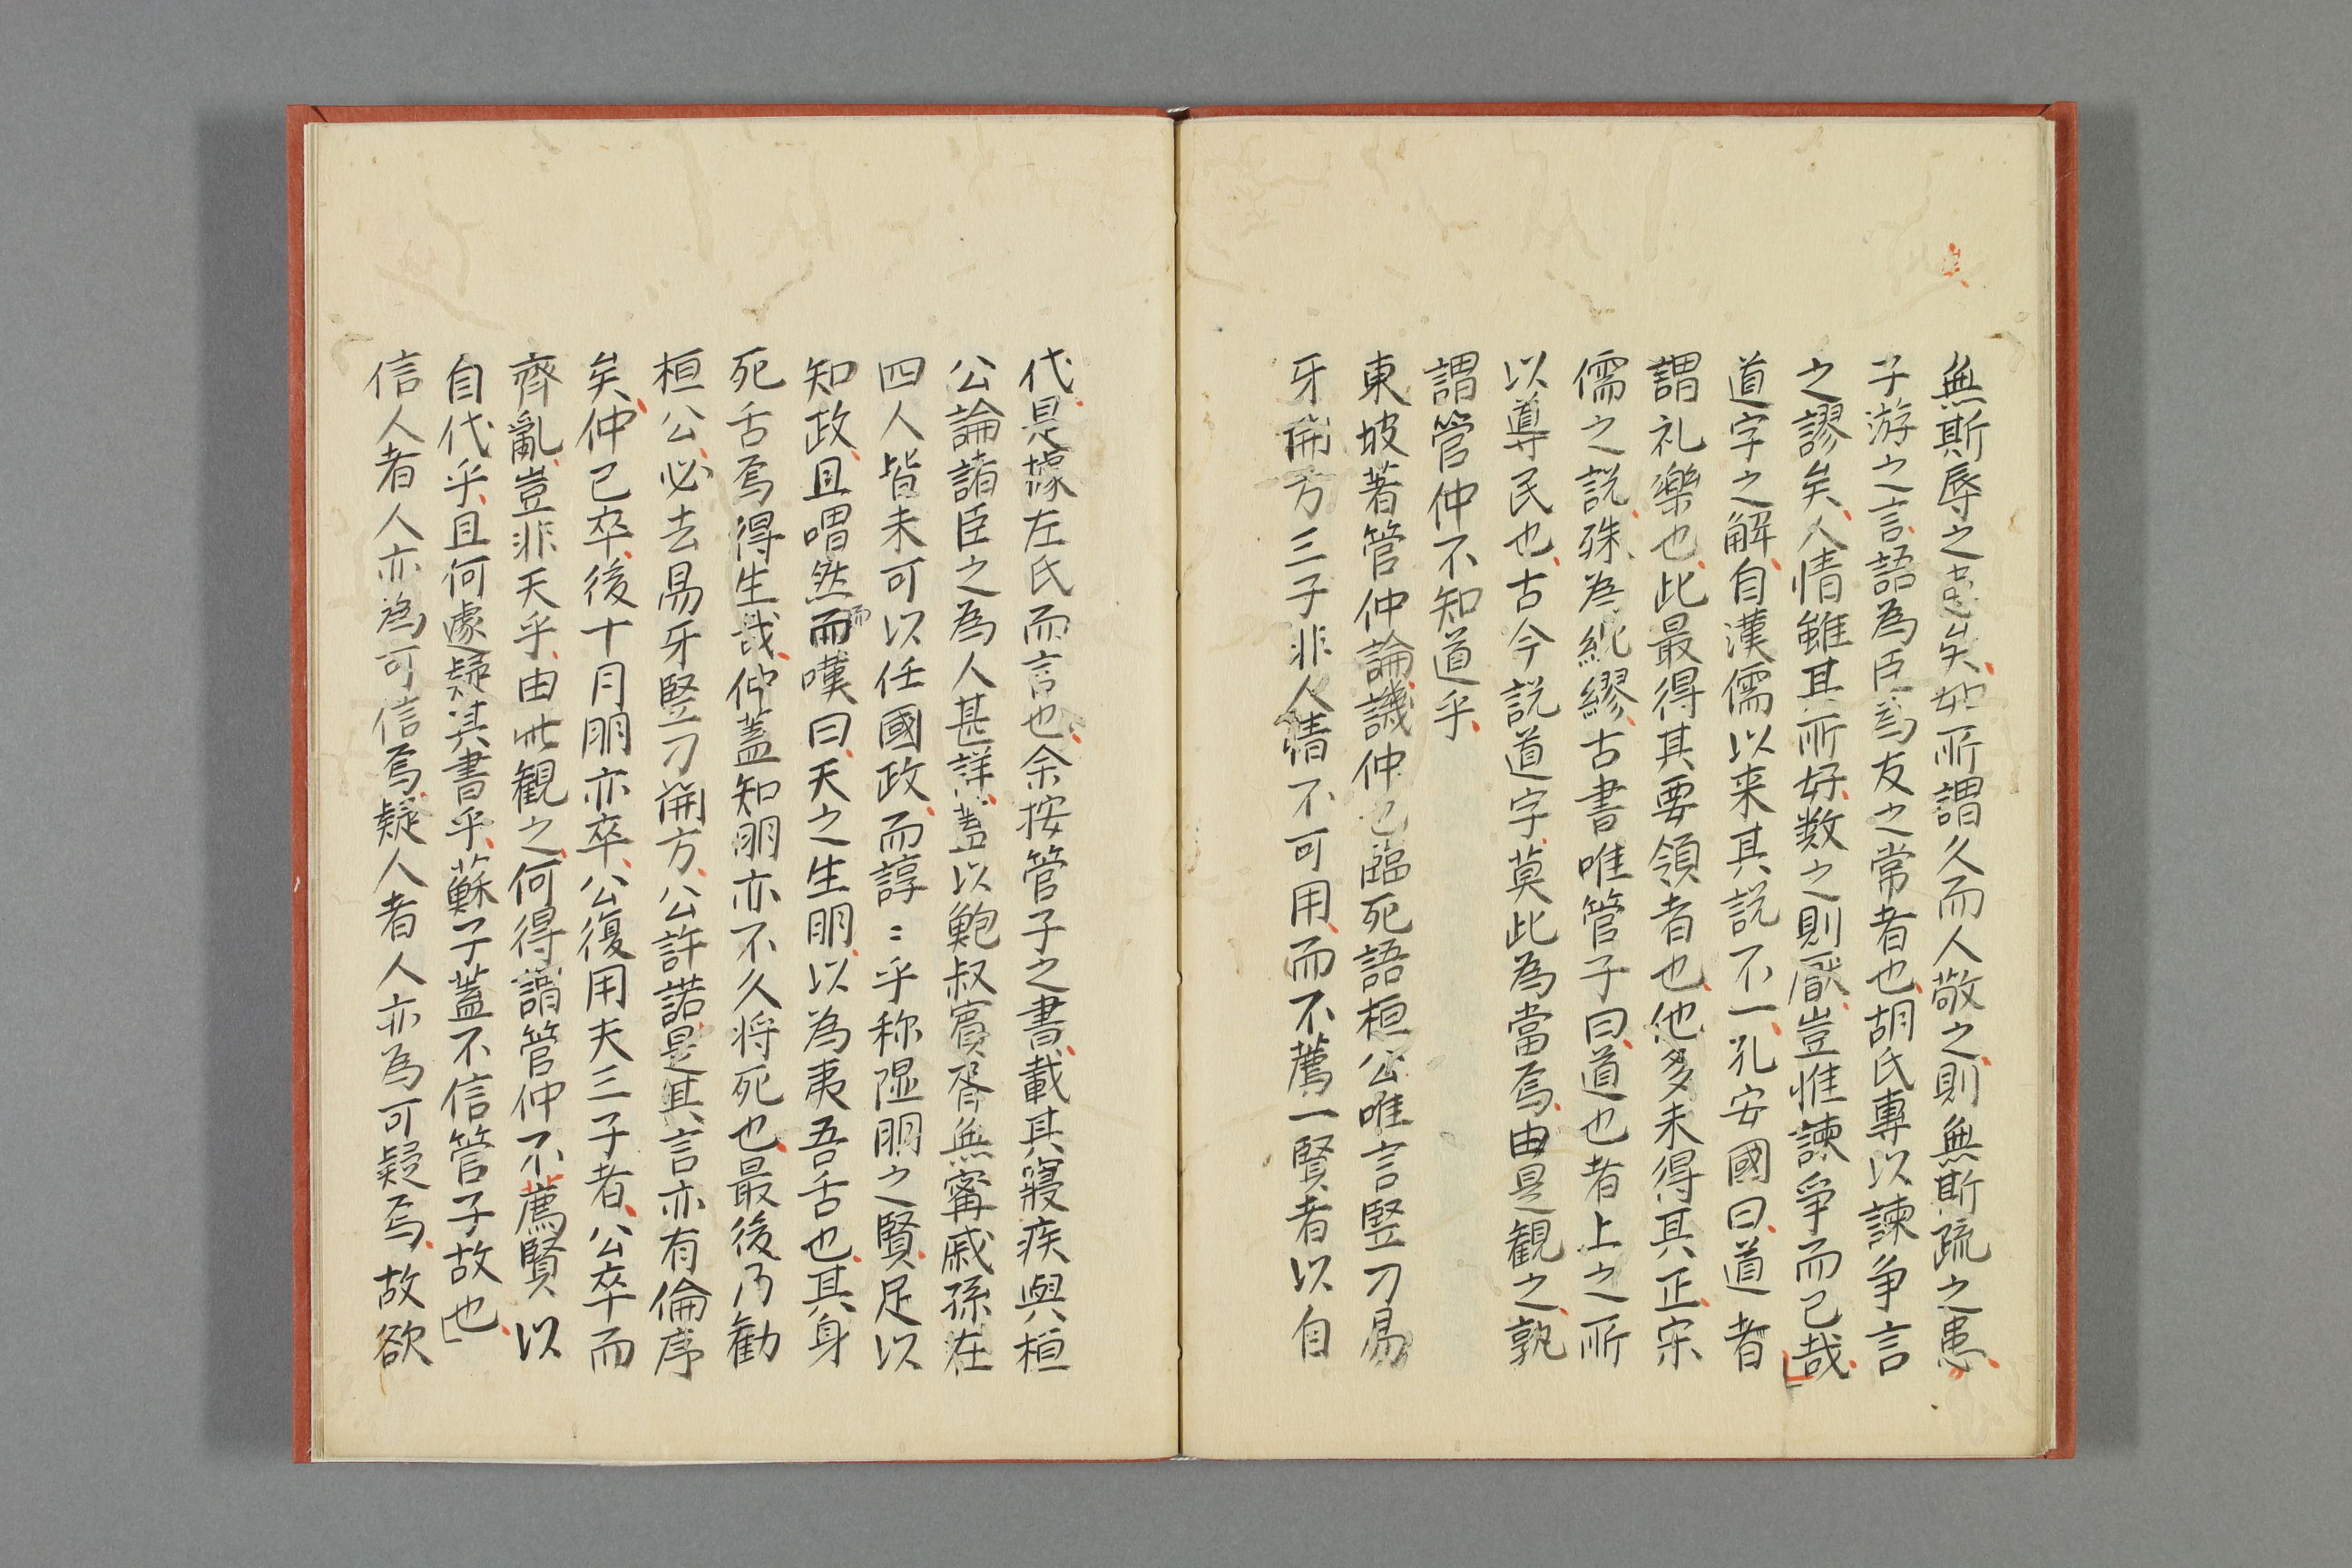 無斯辱之患矣如所謂久而人敬之則無斯疏之患
子游之言語為臣為友之常者也胡氏專以諫争言
之謬矣人情雖其所好数之則厭豈惟諫爭而已哉
道字之解自漢儒以来其説不一孔安國曰道者
謂礼楽也此最得其要領者也他多未得其正宋
儒之説殊為紕繆古書唯管子曰道也者上之所
以導民也古今説道字莫此為當焉由是観之孰
謂管仲不知道乎
東坡著管仲論譏仲已臨死語桓公唯言竪刀易
牙開方三子非人情不可用而不薦一賢者以自
代是據左氏而言也余按管子之書載其寢疾與桓
公論諸臣之為人甚詳蓋以鮑叔賓胥無甯戚孫在
四人皆未可以任國政而諄〻乎称隰朋之賢足以
知政且喟然而嘆曰天之生朋以為夷吾舌也其身
死舌焉得生哉仲蓋知朋亦不久将死也最後乃勧
桓公必去易牙竪刀開方公許諾是其言亦有倫序
矣仲已卒後十月朋亦卒公復用夫三子者公卒而
齊亂豈非天乎由此観之何得謂管仲不薦賢以
自代乎且何遽疑其書乎蘇子蓋不信管子故也
信人者人亦為可信焉疑人者人亦為可疑焉故欲